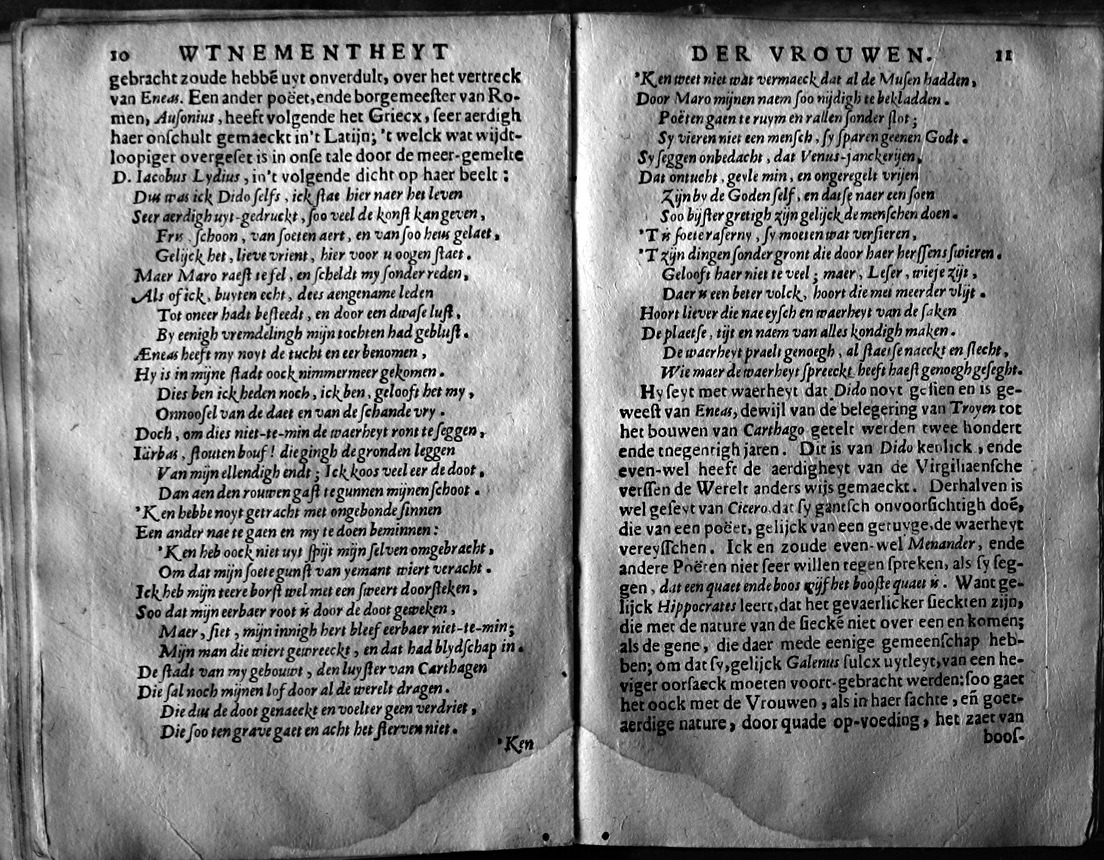 10 WTNEMENTHEYT
gebracht zoude hebbē uyt onverdult, over het vertreck
van Eneas. Een ander poëet, ende borgemeeſter van Ro-
men, Auſonius, heeft volgende het Griecx, ſeer aerdigh
haer onſchult gemaeckt in't Latijn; 't welck wat wijdt-
loopiger overgeſet is in onſe tale door de meer-gemelte
D. Iacobus Lydius, in't volgende dicht op haer beelt:
Dus was ick Dido ſelfs, ick ſtae hier naer het leven
Seer aerdigh uyt-gedruckt, ſoo veel de konſt kan geven,
Fris ſchoon, van ſoeten aert, en van ſoo heus gelaet,
Gelijck het, lieve vrient, hier voor u oogen ſtaet.
Maer Maro raeſt te fel, en ſcheldt my ſonder reden,
Als of ick, buyten echt, dees aengename leden
Tot oneer hadt beſteedt, en door een dwaſe luſt,
By eenigh vremdelingh mijn tochten had gebluſt.
Æneas heeft my noyt de tucht en eer benomen,
Hy is in mijne ſtadt oock nimmermeer gekomen.
Dies ben ick heden noch, ick ben, gelooft het my,
Onnooſel van de daet en van de ſchande vry.
Doch, om dies niet-te-min de waerheyt ront te ſeggen,
Iärbas, ſtouten bouf! die gingh de gronden leggen
Van mijn ellendigh endt; Ick koos veel eer de doot,
Dan aen den rouwen gaſt te gunnen mijnen ſchoot.
'K en hebbe noyt getracht met ongebonde ſinnen
Een ander nae te gaen en my te doen beminnen:
'K en heb oock niet uyt ſpijt mijn ſelven omgebracht,
Om dat mijn ſoete gunſt van yemant wiert veracht.
Ick heb mijn teere borſt wel met een ſweert doorſteken,
Soo dat mijn eerbaer root is door de doot geweken,
Maer, ſiet, mijn innigh hert bleef eerbaer niet-te-min;
Mijn man die wiert gewreeckt, en dat had blydſchap in.
De ſtadt van my gebouwt, den luyſter van Carthagen
Die ſal noch mijnen lof door al de werelt dragen.
Die dus de doot genaeckt en voelter geen verdriet,
Die ſoo ten grave gaet en acht het ſterven niet.
'Ken
DER VROUWEN. 11
'K en weet niet wat vermaeck dat al de Muſen hadden,
Door Maro mijnen naem ſoo nijdigh te bekladden.
Poëten gaen te ruym en rallen ſonder ſlot;
Sy vieren niet een menſch, ſy ſparen geenen Godt.
Sy ſeggen onbedacht, dat Venus-janckerijen,
Dat ontucht, geyle min, en ongeregelt vrijen
Zijn by de Goden ſelf, en datſe naer een ſoen
Soo bijſter gretigh zijn gelijck de menſchen doen.
'T is ſoete raſerny, ſy moeten wat verſieren,
'T zijn dingen ſonder gront die door haer herſſens ſwieren.
Gelooft haer niet te veel; maer, Leſer, wieje zijt,
Daer is een beter volck, hoort die met meerder vlijt.
Hoort liever die nae eyſch en waerheyt van de ſaken
De plaetſe, tijt en naem van alles kondigh maken.
De waerheyt praelt genoegh, al ſtaetſe naeckt en ſlecht,
Wie maer de waerheyt ſpreeckt heeft haeſt genoegh geſeght.
Hy ſeyt met waerheyt dat Dido noyt geſien en is ge-
weeſt van Eneas, dewijl van de belegering van Troyen tot
het bouwen van Carthago getelt werden twee hondert
ende tnegentigh jaren. Dit is van Dido kenlick, ende
even-wel heeft de aerdigheyt van de Virgiliaenſche
verſſen de Werelt anders wijs gemaeckt. Derhalven is
wel geſeyt van Cicero, dat ſy gantſch onvoorſichtigh doē,
die van een poëet, gelijck van een getuyge, de waerheyt
vereyſſchen. Ick en zoude even-wel Menander, ende
andere Poëten niet ſeer willen tegen ſpreken, als ſy ſeg-
gen, dat een quaet ende boos wijf het booſte quaet is. Want ge-
lijck Hippocrates leert, dat het gevaerlicker ſieckten zijn,
die met de nature van de ſieckē niet over een en komen;
als de gene, die daer mede eenige gemeenſchap heb-
ben; om dat ſy, gelijck Galenus ſulcx uytleyt, van een he-
viger oorſaeck moeten voort-gebracht werden: ſoo gaet
het oock met de Vrouwen, als in haer ſachte, eñ goet-
aerdige nature, door quade op-voeding, het zaet van
booſ-